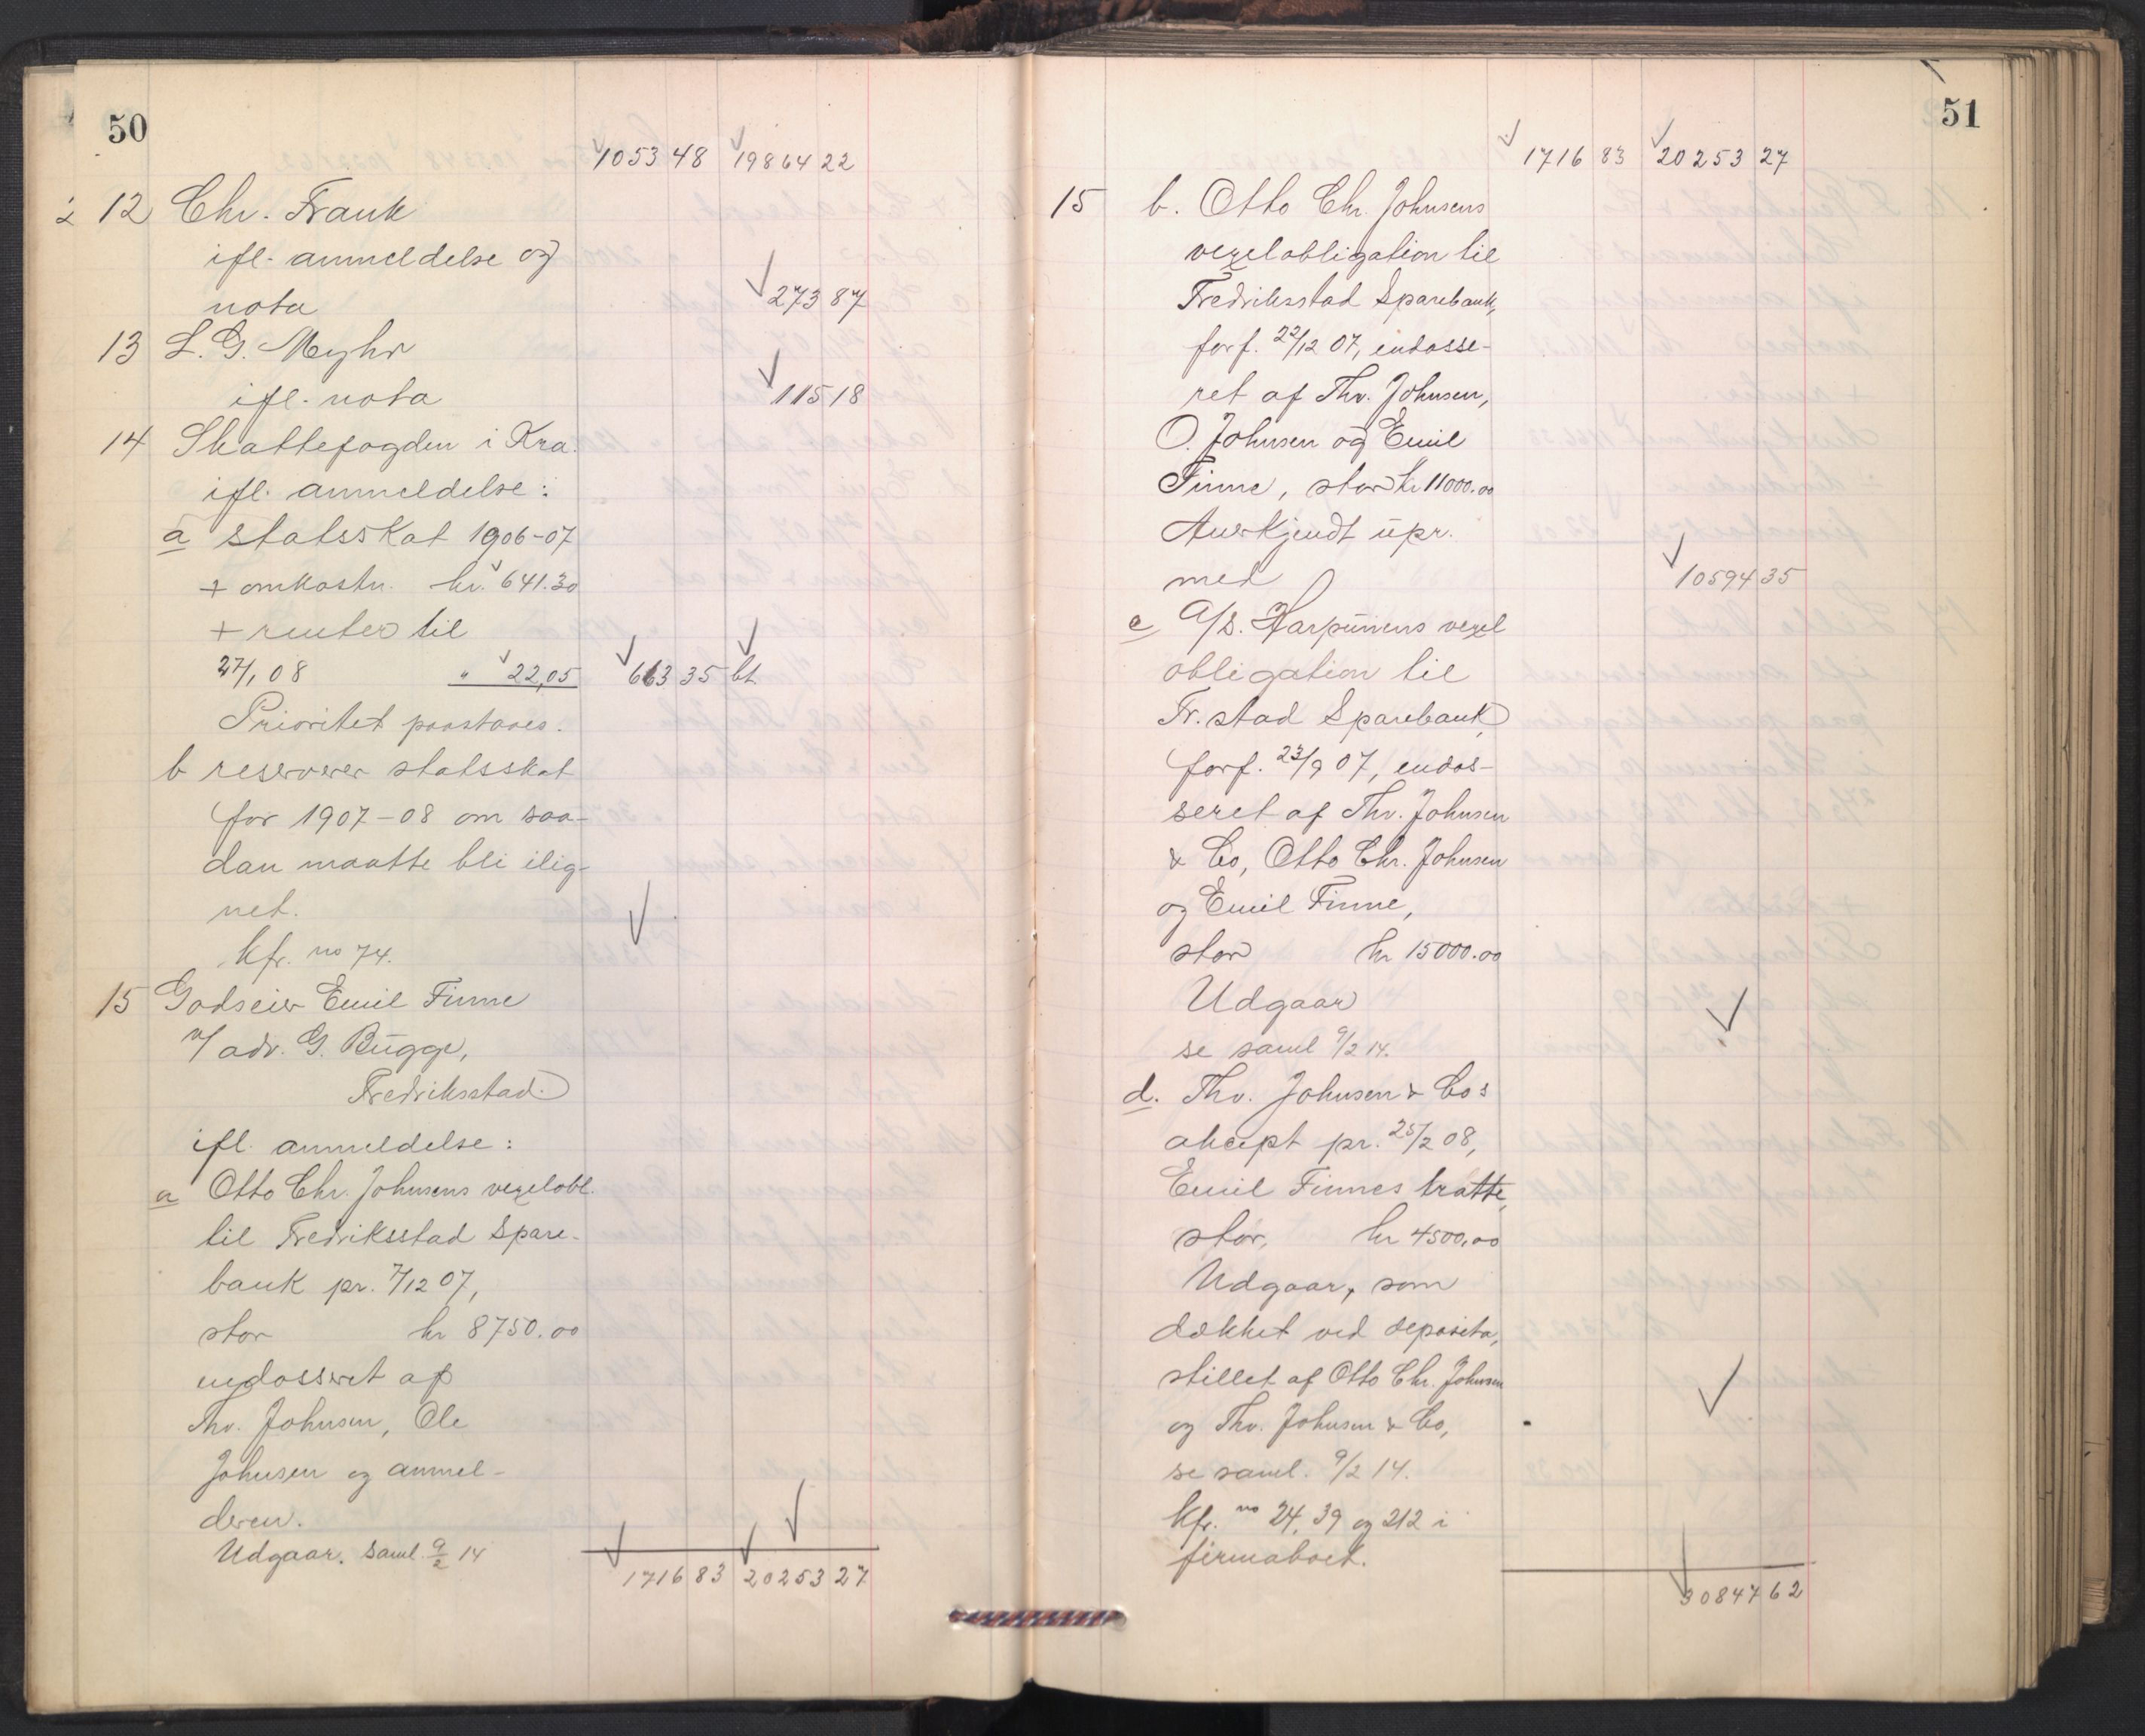 50
1053 48 19864 22
12 Chr. Frank
ifl. anmeldelse og
nota 273 87
13 L. G. Myhr
ifl. nota 115 18
14 Skattefogden i Kra.
ifl. anmeldelse:
a statsskat 1906-07
+ omkostn. kr. 641.30
+ renter til
27/1 08 " 22,05 663 35 bt.
Prioritet paastaaes.
b reserverer statsskat
for 1907-08 om saa-
dan maatte bli ilig-
net.
Kfr. no 74.
15 Godseier Emil Finne
v/ adv. G. Bugge,
Fredriksstad.
ifl. anmeldelse:
a Otto Chr. Johnsens vexelobl.
til Fredriksstad Spare-
bank pr. 7/12 07,
stor kr 8750.00
endosseret af
Thv. Johnsen, Ole
Johnsen og anmel-
deren.
Udgaar. saml. 9/2 14
1716 83 20253 27
51
1716 83 20253 27
15 b. Otto Chr. Johnsens
vexelobligation til
Fredriksstad Sparebank,
forf. 22/12 07, endosse-
ret af Thv. Johnsen,
O. Johnsen og Emil
Finne, stor kr 11000.00
Anerkjendt upr.
med 10594 35
c A/S. Harpunens vexel
obligation til
Fr.stad Sparebank,
forf. 23/9 07, endos-
seret af Thv. Johnsen
& Co, Otto Chr. Johnsen
og Emil Finne,
stor kr 15000.00
Udgaar
se saml 9/2 14.
d. Thv. Johnsen & Cos
akcept pr. 25/2 08,
Emil Finnes tratte,
stor, kr 4500,00
Udgaar, som
dækket ved deposita,
stillet af Otto Chr. Johnsen
og Thv. Johnsen & Co,
se saml. 9/2 14.
Kfr. no 24, 39 og 212 i
firmaboet.
30847 62